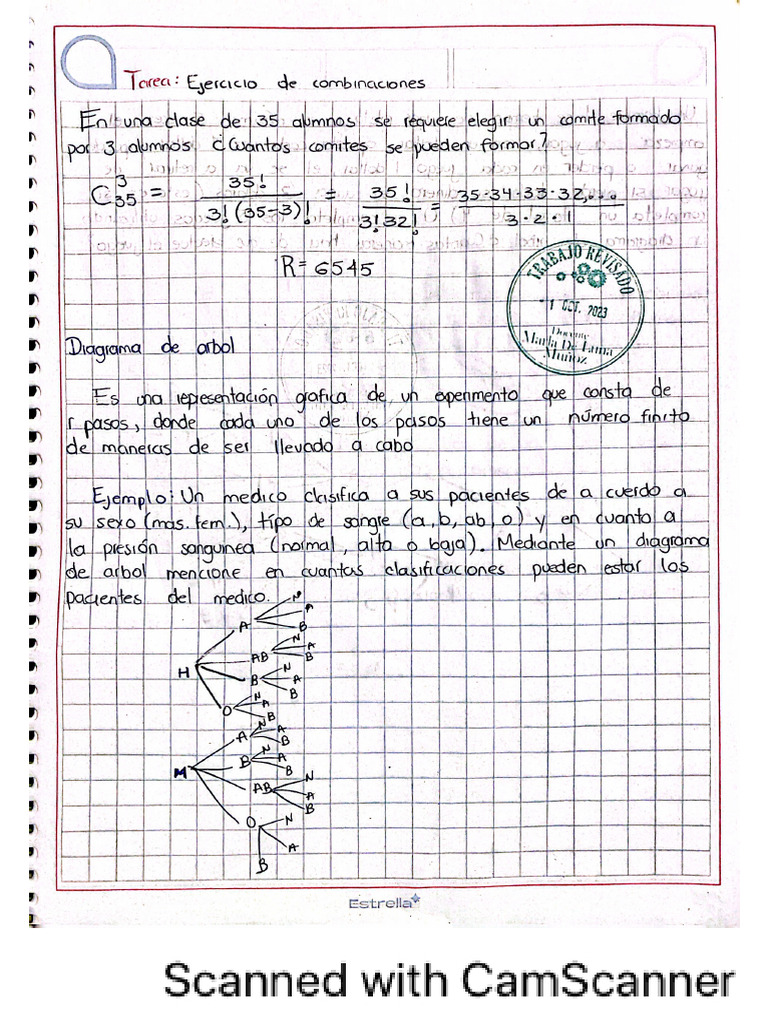 Tarea: Ejercicio de combinaciones
En una clase de 35 alumnos se requiere elegir un comite formado
por 3 alumnos. ¿Cuantos comites se pueden formar?
C₃₅³ = 35! / 3!(35-3)! = 35! / 3!32! = 35·34·33·32,... / 3·2·1
R= 6545
TRABAJO REVISADO
1 OCT. 2023
Docente
María De
Muñoz
Diagrama de arbol
Es una representación grafica de un experimento que consta de
r pasos, donde cada uno de los pasos tiene un número finito
de maneras de ser llevado a cabo
Ejemplo: Un medico clasifica a sus pacientes de a cuerdo a
su sexo (mas. fem.), tipo de sangre (a, b, ab, o) y en cuanto a
la presión sanguinea (normal, alta o baja). Mediante un diagrama
de arbol mencione en cuantas clasificaciones pueden estar los
pacientes del medico.
H
A
N
A
B
AB
N
A
B
B
N
A
B
O
N
A
B
M
A
N
A
B
B
N
A
B
AB
N
A
B
O
N
A
B
Estrella
Scanned with CamScanner